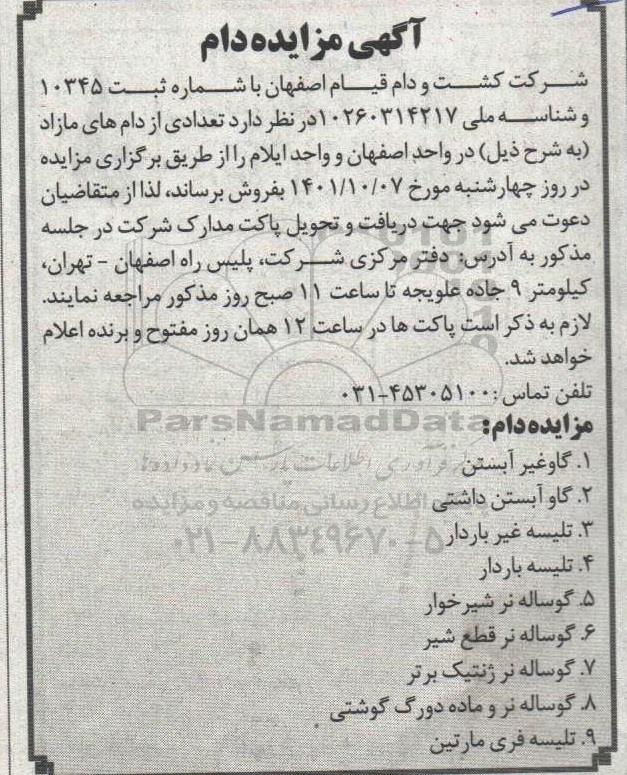 آگهی مزایده دام
شرکت کشت و دام قیام اصفهان با شماره ثبت ۱۰۳۴۵
و شناسه ملی ۱۰۲۶۰۳۱۴۲۱۷ در نظر دارد تعدادی از دام های مازاد
(به شرح ذیل) در واحد اصفهان و واحد ایلام را از طریق برگزاری مزایده
در روز چهارشنبه مورخ ۱۴۰۱/۱۰/۰۷ بفروش برساند، لذا از متقاضیان
دعوت می شود جهت دریافت و تحویل پاکت مدارک شرکت در جلسه
مذکور به آدرس: دفتر مرکزی شرکت، پلیس راه اصفهان - تهران،
کیلومتر ۹ جاده علویجه تا ساعت ۱۱ صبح روز مذکور مراجعه نمایند.
لازم به ذکر است پاکت ها در ساعت ۱۲ همان روز مفتوح و برنده اعلام
خواهد شد.
تلفن تماس: ۴۵۳۰۵۱۰۰-۰۳۱
ParsNamadData
مزایده دام:
۱. گاو غیر آبستن
۲. گاو آبستن داشتی
پایگاه اطلاع رسانی مناقصه و مزایده
۳. تلیسه غیر باردار
۰۲۱-۸۸۳۴۹۶۷۰-۵
۴. تلیسه باردار
۵. گوساله نر شیرخوار
۶. گوساله نر قطع شیر
۷. گوساله نر ژنتیک برتر
۸. گوساله نر و ماده دورگ گوشتی
۹. تلیسه فری مارتین